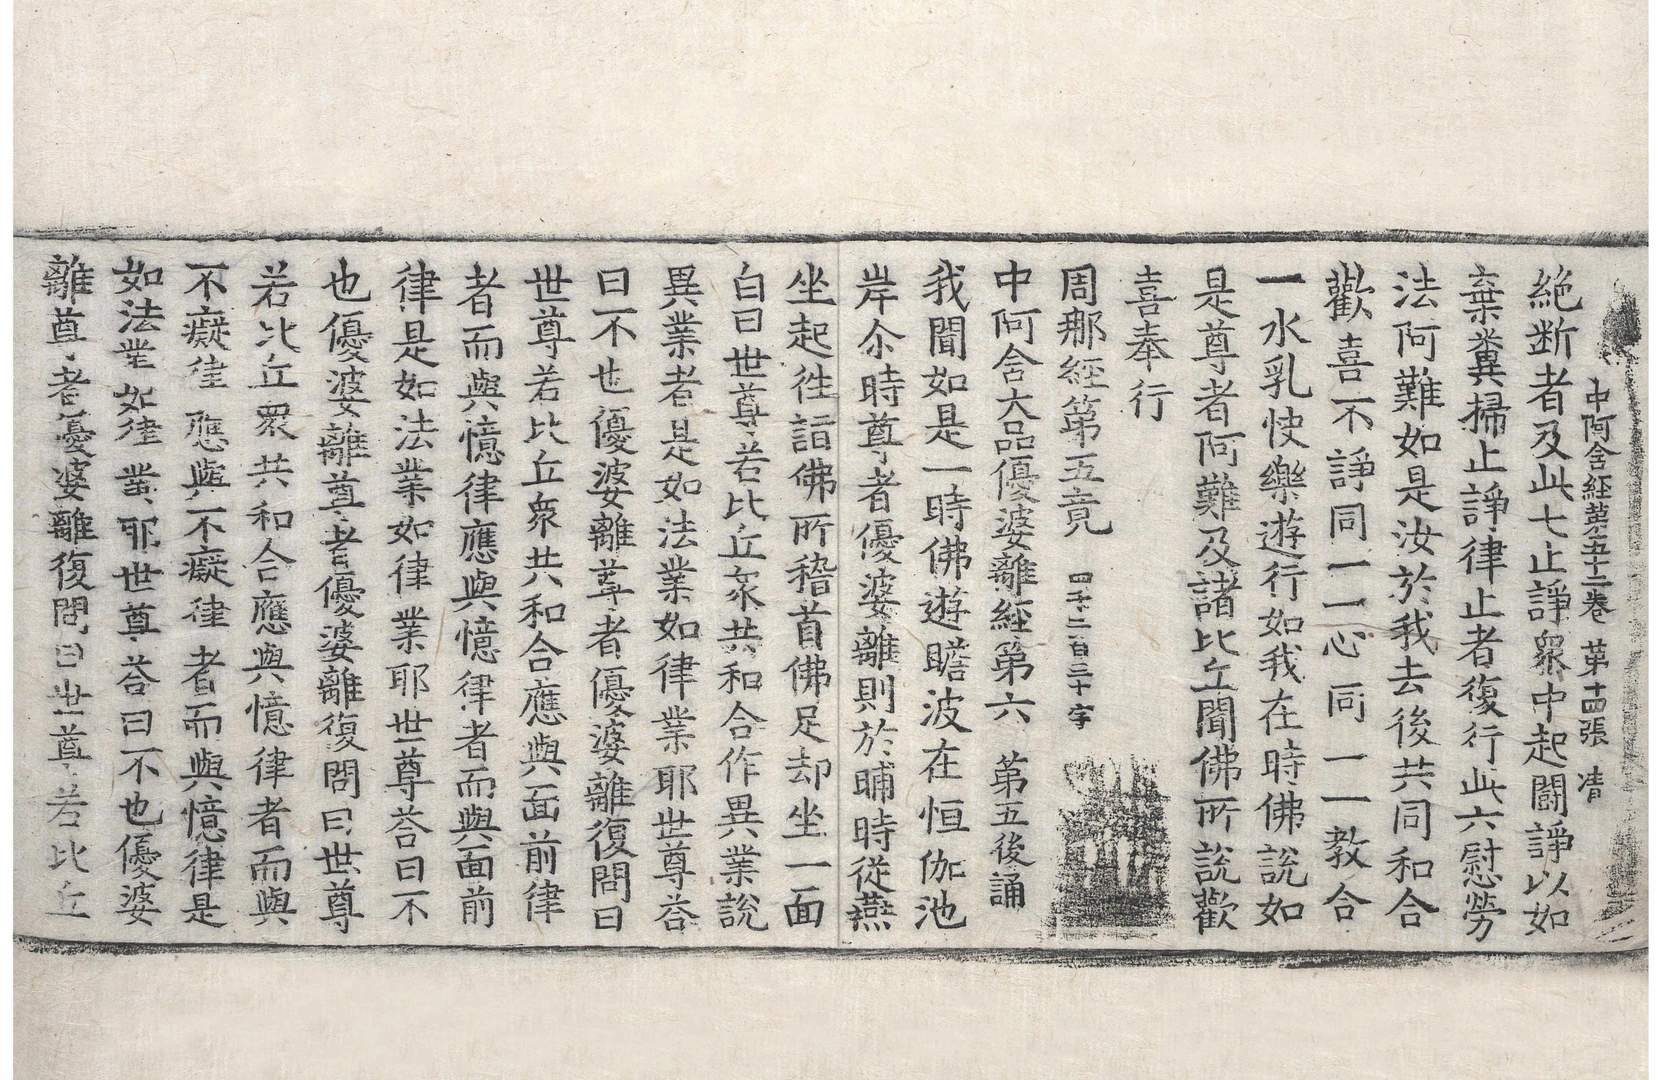 中阿含経苐五十二卷　第十四張　凊
絶断者及此七止諍衆中起鬪諍以如
棄糞掃止諍律止者復行此六慰勞
法阿難如是汝於我去後共同和合
歡喜不諍同一一心同一一教合
一水乳快樂遊行如我在時佛說如
是尊者阿難及諸比丘聞佛所說歡
喜奉行
周那經第五竟　四千二百三十字
中阿含大品優婆離經第六　第五後誦
我聞如是一時佛遊瞻波在恒伽池
岸尒時尊者優婆離則於晡時從燕
坐起往詣佛所稽首佛足却坐一面
白曰世尊若比丘衆共和合作異業說
異業者是如法業如律業耶世尊荅
曰不也優婆離尊者優婆離復問曰
世尊若比丘衆共和合應與面前律
者而與憶律應與憶律者而與面前
律是如法業如律業耶世尊荅曰不
也優婆離尊者優婆離復問曰世尊
若比丘衆共和合應與憶律者而與
不癡律應與不癡律者而與憶律是
如法業如律業耶世尊荅曰不也優婆
離尊者優婆離復問曰世尊若比丘